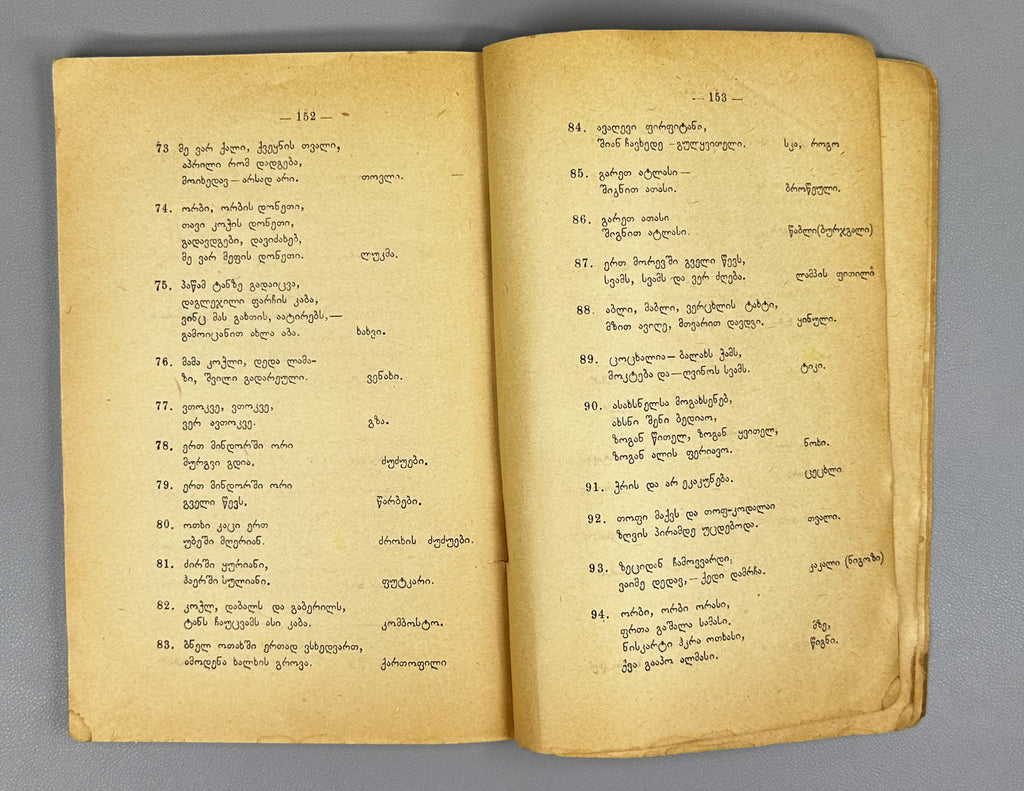 — 152 —
73 მე ვარ ქალი, ქვეყნის თვალი,
აპრილი რომ დადგება,
მოიხედავ—არსად არი. თოვლი.
74. ორბი, ორბის დონეთი,
თავი კოჭის დონეთი,
გადავდგები, დავიძახებ,
მე ვარ მეფის დონეთი. ლუკმა.
75. პაწამ ტანზე გადაიცვა,
დაგლეჯილი ფარჩის კაბა,
ვინც მას გახთის, აატირებს,—
გამოიცანით ახლა აბა. ხახვი.
76. მამა კოჭლი, დედა ლამა-
ზი, შვილი გადარეული. ვენახი.
77. ვთოკვე, ვთოკვე,
ვერ ავთოკვე. გზა.
78. ერთ მინდორში ორი
მურგვი გდია. ძუძუები.
79. ერთ მინდორში ორი
გველი წევს. წარბები.
80. ოთხი კაცი ერთ
უბეში მღერიან. ძროხის ძუძუები.
81. ძირში ყურიანი,
ჰაერში სულიანი. ფუტკარი.
82. კოჭლ, დაბალს და გაბერილს,
ტანს ჩაუცვამს ასი კაბა. კომბოსტო.
83. ბნელ ოთახში ერთად ვსხედვართ,
ამოდენა ხალხის გროვა. ქართოფილი
— 153 —
84. ავაღევი ფირფიტანი,
შიან ჩავხედე - გულყვითელი. სკა, როგო
85. გარეთ ატლასი —
შიგნით ათასი. ბროწეული.
86. გარეთ ათასი
შიგნით ატლასი. წაბლი(ბურჯგალი)
87. ერთ მორევში გველი წევს,
სვამს, სვამს და ვერ ძღება. ლამპის ფითილი
88. აბლი, მაბლი, ვერცხლის ტახტი,
მზით ავილე, მთვარით დავდვი. ყინული.
89. ცოცხალია — ბალახს ჭამს,
მოკტება და—ღვინოს სვამს. ტიკი.
90. ასახსნელსა მოგახსენებ,
ახსნი შენი ბედიაო,
ზოგან წითელ, ზოგან ყვითელ,
ზოგან ალის ფერიავო. ნოხი.
91. ჭრის და არ ეკაკუნება. ცეცხლი
92. თოფი მაქვს და თოფ-კოდალაი
ზღვის პირამდე უცდებოდა. თვალი.
93. ზეციდან ჩამოვვარდი,
ვაიმე დედავ, — ქედი დამრჩა. კაკალი (ნიგოზი)
94. ორბი, ორბი ორასი,
ფრთა გაშალა სამასი. მზე,
ნისკარტი ჰკრა ოთხასი, წიგნი.
ქვა გააპო ალმასი.